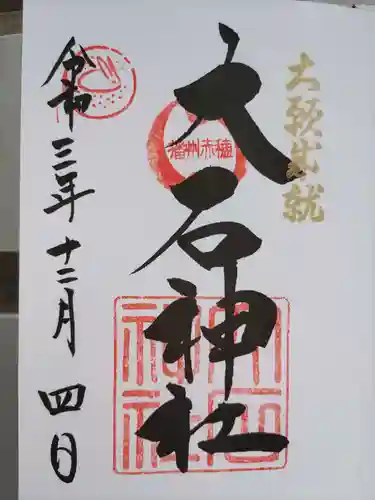 大願成就
播州赤穂
大石神社
大石神社
令和三年十二月四日